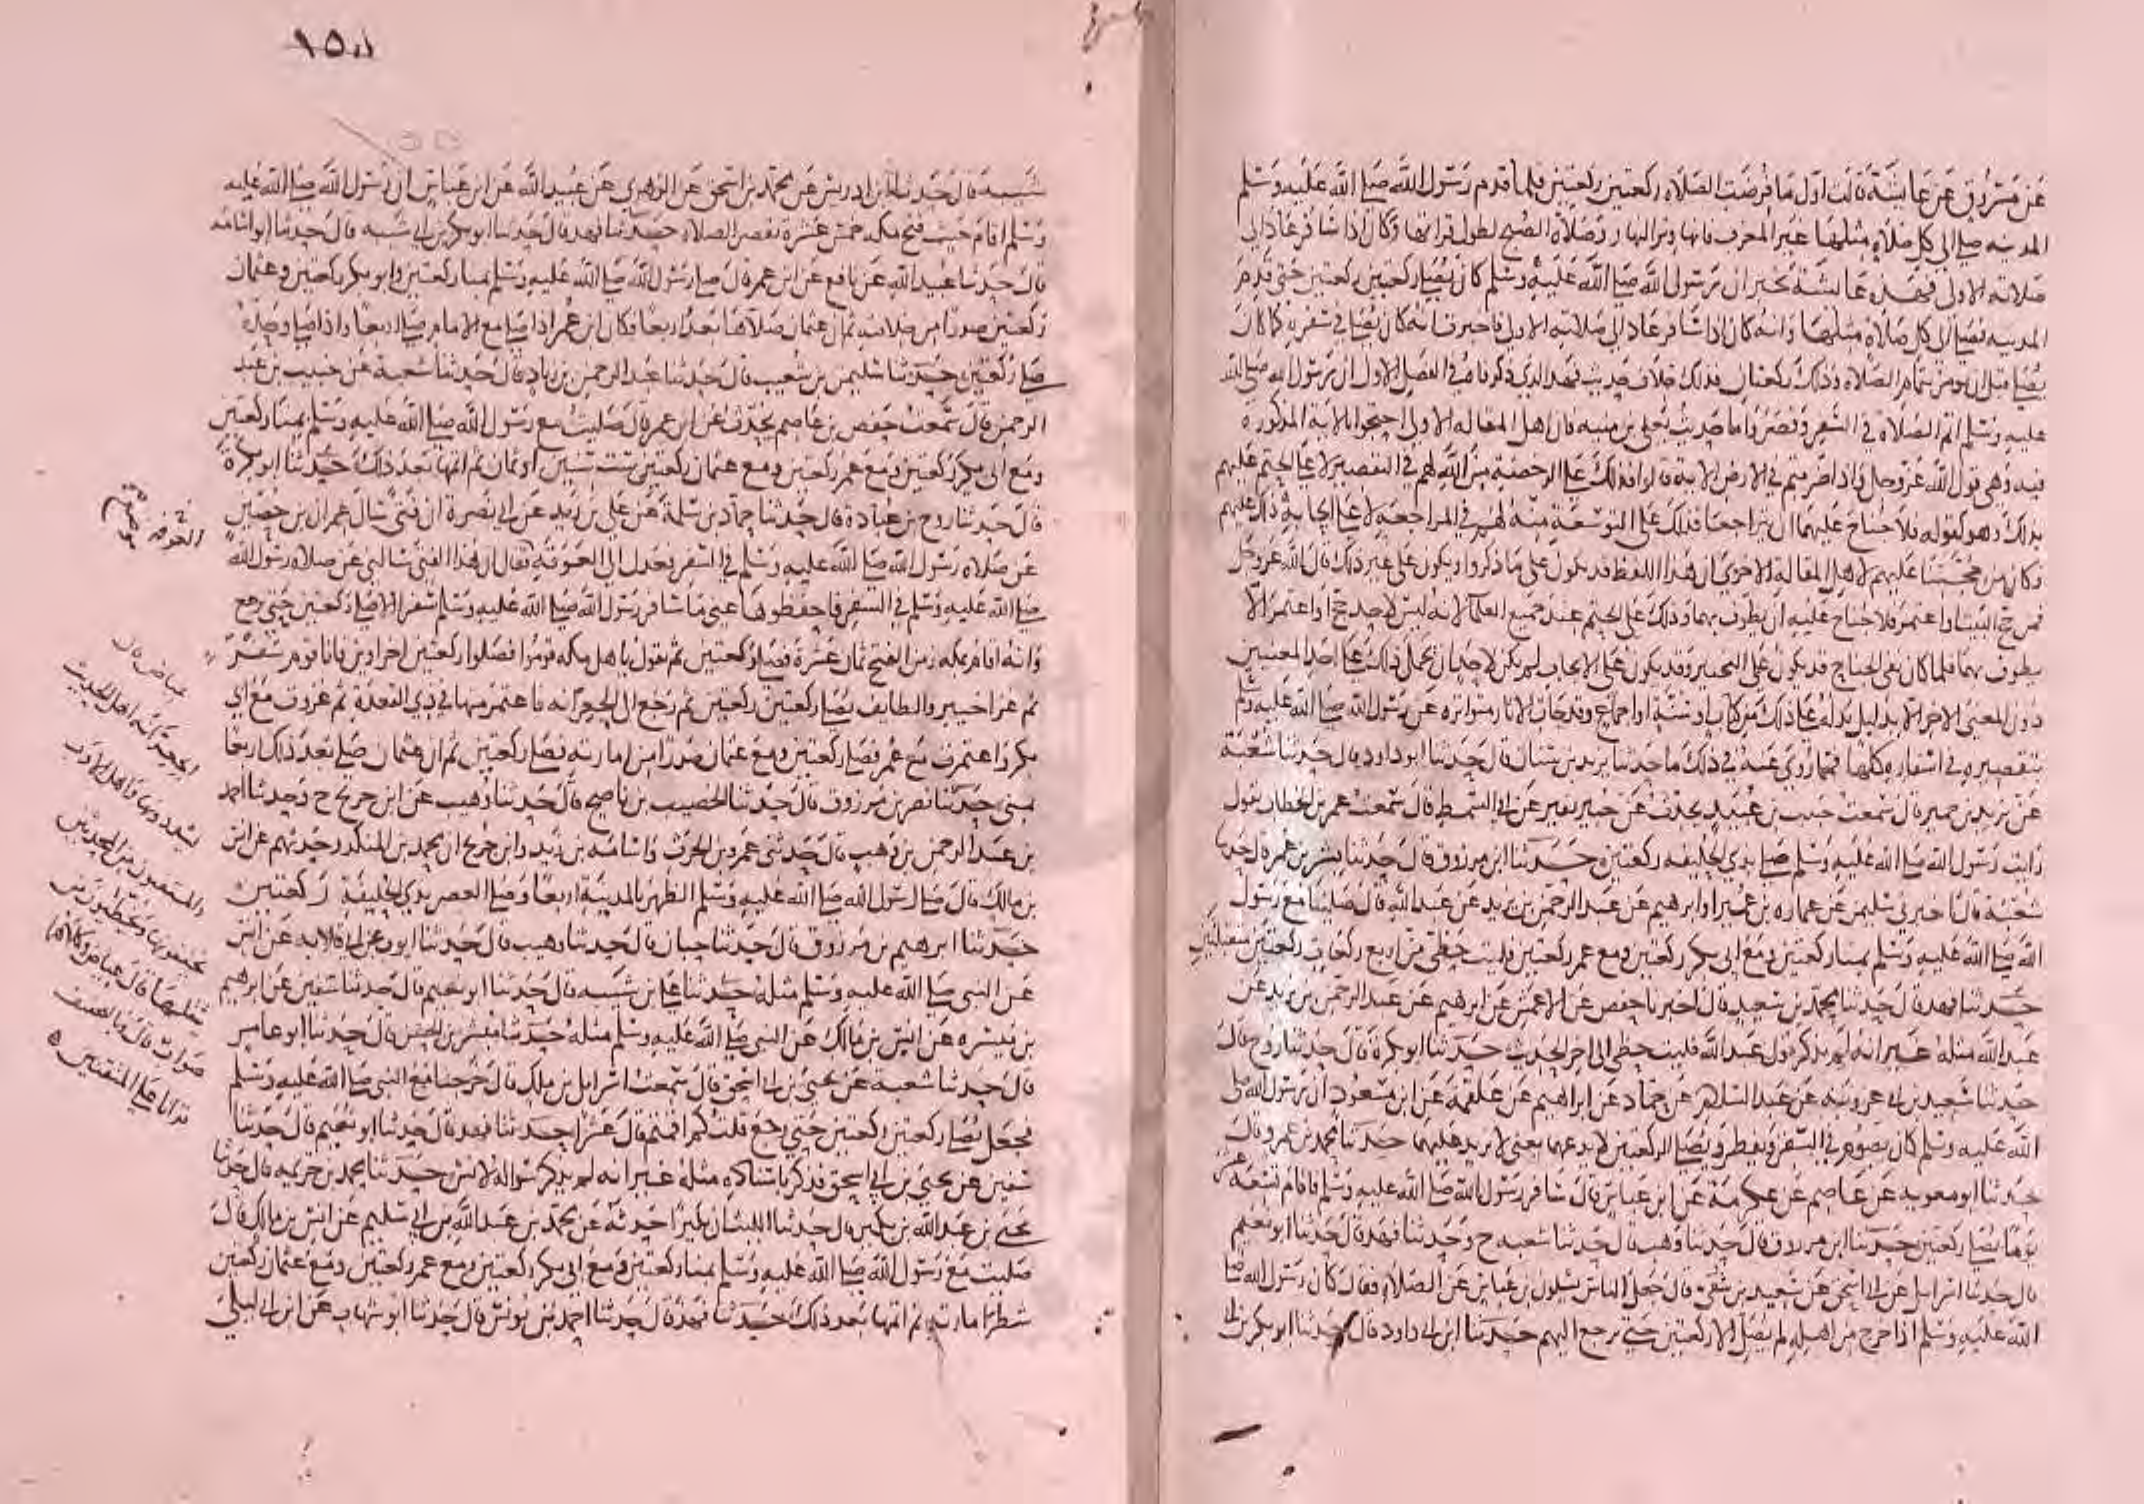 عن مسروق عن عايشة قالت اول ما فرضت الصلاه ركعتين ركعتين فلما قدم رسول الله صلى الله عليه وسلم
المدينه صلى الى كل صلاه مثلها غير المغرب فانها وتر النهار وصلاة الصبح لطول قراتها وكان اذا سافر عاد الى
صلاته الاولى فهذه عايشة تخبر ان رسول الله صلى الله عليه وسلم كان يصلى ركعتين ركعتين حتى قدم
المدينه فصلى الى كل صلاة مثلها وانه كان اذا سافر عاد الى صلاته الاولى فاخبرت انه كان يصلى في سفره كما كان
يصلى قبل ان يومر بتمام الصلاة وذلك ركعتان فذلك خلاف حديث فهد الذي ذكرناه في الفصل الاول ان رسول الله صلى الله
عليه وسلم اتم الصلاة في السفر وقصر واما حديث يعلى بن منيه فان اهل المقاله الاولى احتجوا بالايه المذكوره
فيه وهي قول الله عز وجل واذا ضربتم في الارض الايه قالوا فذلك على الرخصة من الله لهم في التقصير لا على الحتم عليهم
بذلك وهو كقوله فلا جناح عليهما ان يتراجعا فذلك على التوسعة منه لهم في المراجعه لا على ايجابه ذلك عليهم
وكان من حجتنا عليهم لاهل المقالة الاخرى ان هذا اللفظ قد يكون على ما ذكروا ويكون على غير ذلك قال الله عز وجل
فمن حج البيت او اعتمر فلا جناح عليه ان يطوف بهما وذلك على الحتم عند جميع العلما لانه ليس لاحد حج او اعتمر الا
يطوف بهما فلما كان نفي الجناح قد يكون على التخيير وقد يكون على الايجاب لم يكن لاحد ان يحمل ذلك على احد المعنيين
دون المعنى الاخر الا بدليل يدله على ذلك من كتاب او سنة او اجماع وقد جات الاثار متواتره عن رسول الله صلى الله عليه وسلم
بتقصيره في اسفاره كلها فمما روي عنه في ذلك ما حدثنا يزيد بن سنان قال حدثنا ابو داود قال حدثنا شعبة
عن يزيد بن خمير قال سمعت حبيب بن عبيد يحدث عن جبير بن نفير عن ابن السمط قال سمعت عمر بن الخطاب يقول
رايت رسول الله صلى الله عليه وسلم صلى بذي الحليفه ركعتين حدثنا ابن مرزوق قال حدثنا بشر بن عمر قال حدثنا
شعبة قال اخبرني سليمن عن عماره بن عمير او ابرهيم عن عبد الرحمن بن يزيد عن عبد الله قال صلينا مع رسول
الله صلى الله عليه وسلم بمنا ركعتين ومع ابي بكر ركعتين ومع عمر ركعتين فليت حظي من اربع ركعات ركعتين متقبلتين
حدثنا فهد قال حدثنا محمد بن سعيد قال اخبرنا حفص عن الاعمش عن ابرهيم عن عبد الرحمن بن يزيد عن
عبد الله مثله غير انه لم يذكر قول عبد الله فليت حظي الى اخر الحديث حدثنا ابو بكرة قال حدثنا روح قال
حدثنا سعيد بن ابي عروبة عن عبد السلام عن حماد عن ابراهيم عن علقمة عن ابن مسعود ان رسول الله صلى
الله عليه وسلم كان يصوم في السفر ويفطر ويصلى الركعتين لا يدعهما يعني لا يزيد عليهما حدثنا محمد بن عمرو قال
حدثنا ابو معويه عن عاصم عن عكرمة عن ابن عباس قال سافر رسول الله صلى الله عليه وسلم فاقام تسعة عشر
يوما يصلي ركعتين حدثنا ابن مرزوق قال حدثنا وهب قال حدثنا شعبه ح وحدثنا فهد قال حدثنا ابو نعيم
قال حدثنا اسرايل عن ابي اسحق عن سعيد بن شفي قال جعل الناس يسلون بن عباس عن الصلاه فقال كان رسول الله صلى
الله عليه وسلم اذا خرج من اهله لم يصل الا ركعتين حتى يرجع اليهم حدثنا ابن ابي داود قال حدثنا ابو بكر بن ابي
شيبه قال حدثنا ابن ادريس عن محمد بن اسحق عن الزهري عن عبيد الله عن ابن عباس ان رسول الله صلى الله عليه
وسلم اقام حيث فتح مكه خمس عشرة يقصر الصلاه حدثنا فهد قال حدثنا ابو بكر بن ابي شيبه قال حدثنا ابو اسامه
قال حدثنا عبيد الله عن نافع عن ابن عمر قال صلى رسول الله صلى الله عليه وسلم بمنا ركعتين وابو بكر ركعتين وعثمان
ركعتين صدرا من خلافته ثم ان عثمان صلاها بعد اربعا وكان ابن عمر اذا صلى مع الامام صلى اربعا واذا صلى وحده
صلى ركعتين حدثنا سليمن بن شعيب قال حدثنا عبد الرحمن بن زياد قال حدثنا شعبة عن خبيب بن عبد
الرحمن قال سمعت حفص بن عاصم يحدث عن ابن عمر قال صليت مع رسول الله صلى الله عليه وسلم بمنا ركعتين
ومع ابي بكر ركعتين ومع عمر ركعتين ومع عثمان ركعتين ست سنين او ثمان ثم اتمها بعد ذلك حدثنا ابو بكرة
قال حدثنا روح بن عبادة قال حدثنا حماد بن سلمة عن علي بن زيد عن ابي نضرة ان فتى سال عمران بن حصين
عن صلاه رسول الله صلى الله عليه وسلم في السفر فعدل الى العوقة فقال ان هذا الفتى سالني عن صلاه رسول الله
صلى الله عليه وسلم في السفر فاحفظوها عني ما سافر رسول الله صلى الله عليه وسلم سفرا الا صلى ركعتين حتى يرجع
وانه اقام بمكه زمن الفتح ثمان عشرة فصلى ركعتين ثم يقول يا اهل مكه قوموا فصلوا ركعتين اخراوين فانا قوم سفر
ثم غزا خيبر والطايف يصلى ركعتين ركعتين ثم رجع الى الجعرانه فاعتمر منها في ذي القعدة ثم غزوت مع ابي
بكر واعتمرت مع عمر فصلى ركعتين ومع عثمان صدرا من امارته فصلى ركعتين ثم ان عثمان صلى بعد ذلك اربعا
بمنى حدثنا نصر بن مرزوق قال حدثنا الخصيب بن ناصح قال حدثنا وهيب عن ابن جريج ح وحدثنا احمد
بن عبد الرحمن بن وهب قال حدثني عمي قال حدثني عمرو بن الحرث واسامه بن زيد وابن جريج ان محمد بن المنكدر حدثهم عن انس
بن مالك قال صلى رسول الله صلى الله عليه وسلم الظهر بالمدينة اربعا وصلى العصر بذي الحليفة ركعتين
حدثنا ابرهيم بن مرزوق قال حدثنا حبان قال حدثنا وهيب قال حدثنا ايوب عن ابي قلابه عن انس
عن النبي صلى الله عليه وسلم مثله حدثنا علي بن شيبه قال حدثنا ابو نعيم قال حدثنا سفين عن ابرهيم
بن ميسره عن انس بن مالك عن النبي صلى الله عليه وسلم مثله حدثنا مبشر بن الحسن قال حدثنا ابو عامر
قال حدثنا شعبة عن يحيى بن ابي اسحق قال سمعت انس بن ملك قال خرجنا مع النبي صلى الله عليه وسلم
فجعل يصلى ركعتين ركعتين حتى رجع قلت كم اقمتم قال عشرا حدثنا فهد قال حدثنا ابو نعيم قال حدثنا
سفين عن يحيى بن ابي اسحق فذكر باسناده مثله غير انه لم يذكر سواله لانس حدثنا محمد بن خزيمه قال حدثنا
يحيى بن عبد الله بن بكير قال حدثنا الليث ان بكيرا حدثه عن محمد بن عبد الله بن ابي سليم عن انس بن مالك قال
صليت مع رسول الله صلى الله عليه وسلم بمنا ركعتين ومع ابي بكر ركعتين ومع عمر ركعتين ومع عثمان ركعتين
شطر امارته ثم اتمها بعد ذلك حدثنا فهد قال حدثنا احمد بن يونس قال حدثنا ابو شهاب عن ابن ابي ليلى
عياض قال
الجعرانه اهل الحديث
يشددونها واهل الادب
يخففونها ويخطيون من